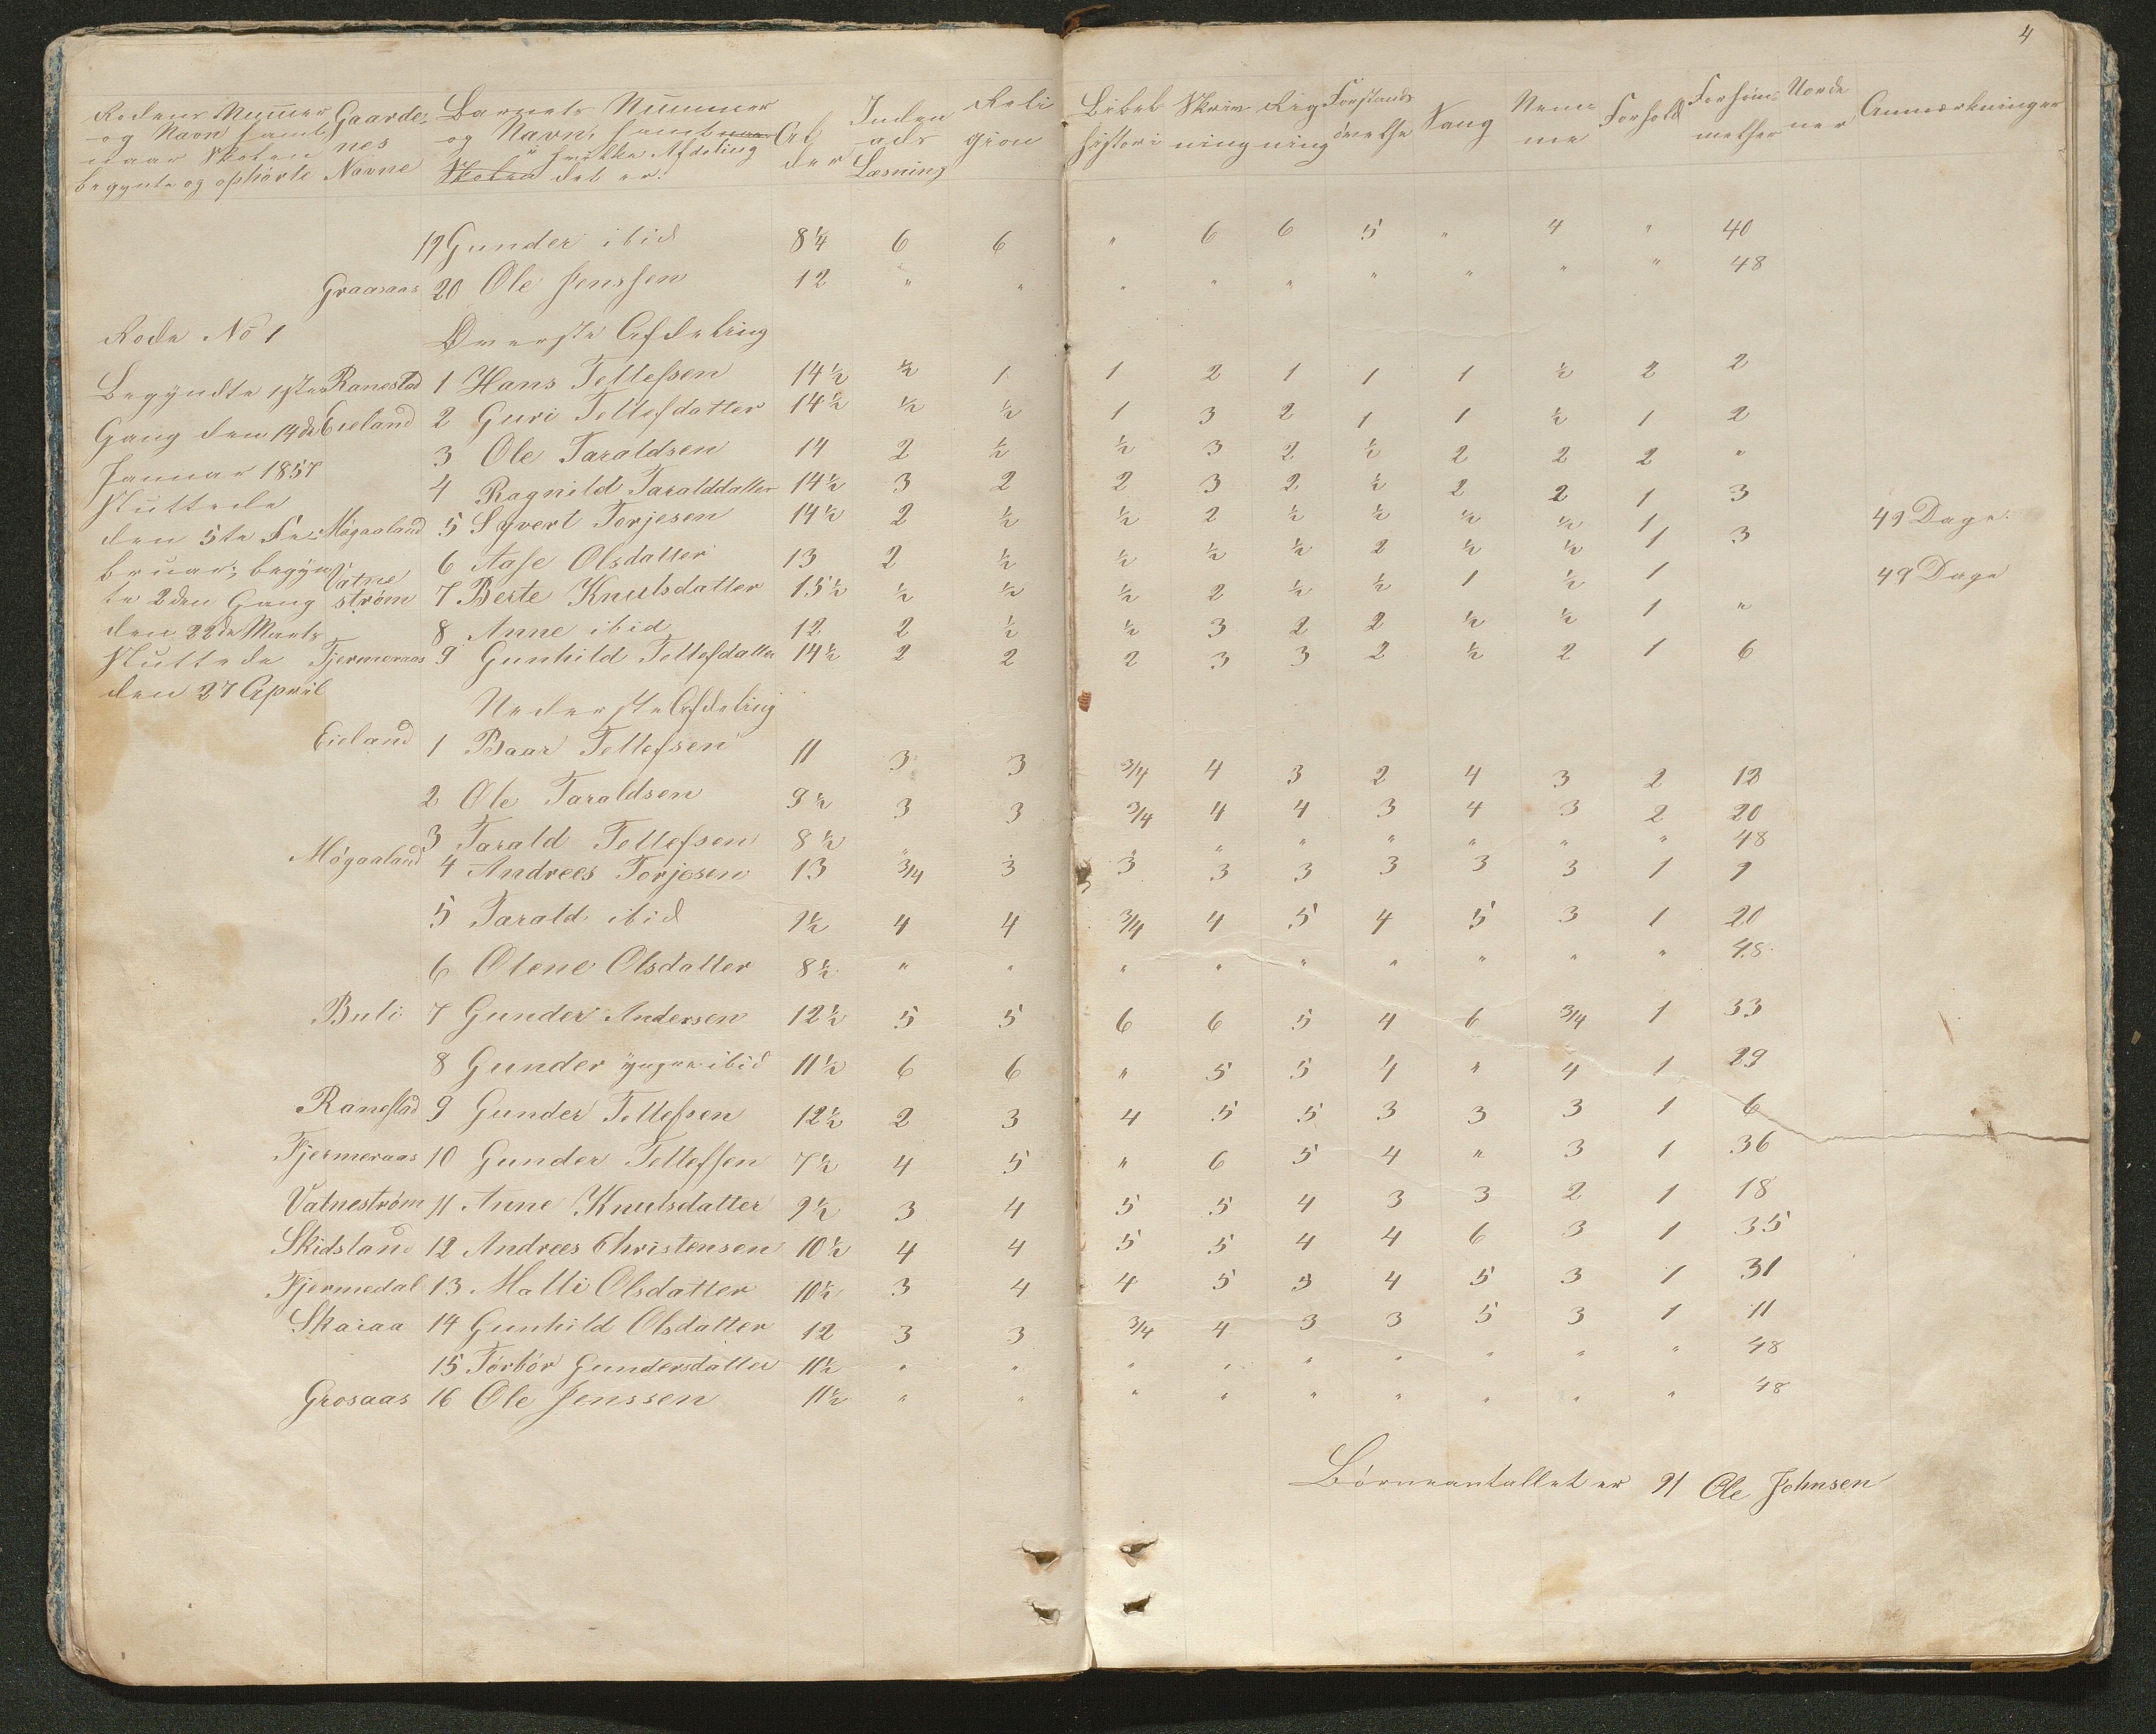 4
Rodens Nummer og Navn samt naar Skolen begynte og ophörte Gaardenes Navne Barnets Nummer og Navn, samt i hvilke Afdeling det er. Alder Indenads Læsning Religion Bibelhistori Skrivning Rigning Forstandsövelse Sang Nemme Forhold Forsömmelser Anmærkninger
19 Gunder ibid 8 1/4 6 6 " 6 6 5 " 4 " 40
Graasaas 20 Ole Jenssen 12 " " " " " " " " " 48
Rode No 1 Överste Afdeling
Begyndte 1ste Ranestad 1 Hans Tellefsen 14 1/2 1/2 1 1 2 1 1 1 1/2 2 2
Gang den 14de Eieland 2 Guri Tellefsdatter 14 1/2 1/2 1/2 1 3 2 1 1 1/2 1 2
3 Ole Taraldsen 14 2 1/2 1/2 3 2 1/2 2 2 2 "
Januar 1857 4 Ragnild Taralddatter 14 1/2 3 2 2 3 2 1/2 2 2 1 3
Sluttede
den 5te Fe- Mögaaland 5 Syvert Torjesen 14 1/2 2 1/2 1/2 2 1/2 1/2 1/2 1/2 1 49 Dage.
bruar; begyn 6 Aase Olsdatter 13 2 1/2 1/2 1/2 1/2 2 1/2 1/2 1 3
te 2den Gang Vatneström 7 Berte Knutsdatter 15 1/2 1/2 1/2 1/2 2 1/2 1/2 1 1/2 1 49 Dage
den 22de Marts 8 Anne ibid 12 2 1/2 1/2 3 2 2 1/2 1/2 1 "
Sluttede Fjermeraas 9 Gunhild Tellefsdatter 14 1/2 2 2 2 3 3 2 1/2 2 1 6
den 27 April
Nederste Afdeling
Eieland 1 Baar Tellefsen 11 3 3 3/4 4 3 2 4 3 2 12
2 Ole Taraldsen 9 1/2 3 3 3/4 4 4 3 4 3 2 20
3 Tarald Tellefsen 8 1/2 " " " " " " " " 48
Mögaaland 4 Andrees Torjesen 13 3/4 3 3 3 3 3 3 3 1 9
5 Tarald ibid 9 1/2 4 4 3/4 4 5 4 5 3 1 20
6 Olene Olsdatter 8 1/2 " " " " " " " " " 48
Buli 7 Gunder Andersen 12 1/2 5 5 6 6 5 4 6 3/4 1 33
8 Gunder yngre ibid 11 1/2 6 6 " 5 5 4 " 4 1 29
Ranestad 9 Gunder Tellefsen 12 1/2 2 3 4 5 5 3 3 3 1 6
Fjermeraas 10 Gunder Tellefsen 7 1/2 4 5 " 6 5 4 " 3 1 36
Vatneström 11 Anne Knutsdatter 9 1/2 3 4 5 5 4 3 3 2 1 18
Skidsland 12 Andrees Christensen 10 1/2 4 4 5 5 4 4 6 3 1 35
Fjermedal 13 Malli Olsdatter 10 1/2 3 4 4 5 5 4 5 3 1 31
Skaiaa 14 Gunhild Olsdatter 12 3 3 3/4 4 3 3 5 3 1 11
15 Törbör Gundersdatter 11 1/2 " " " " " " " " " 48
Grosaas 16 Ole Jenssen 11 1/2 " " " " " " " " " 48
Börneantallet er 91 Ole Johnsen